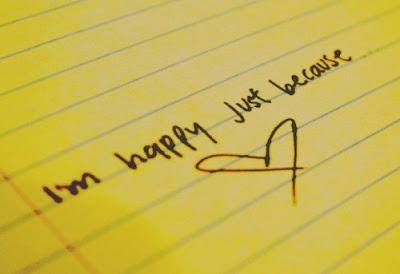 I'm happy just because